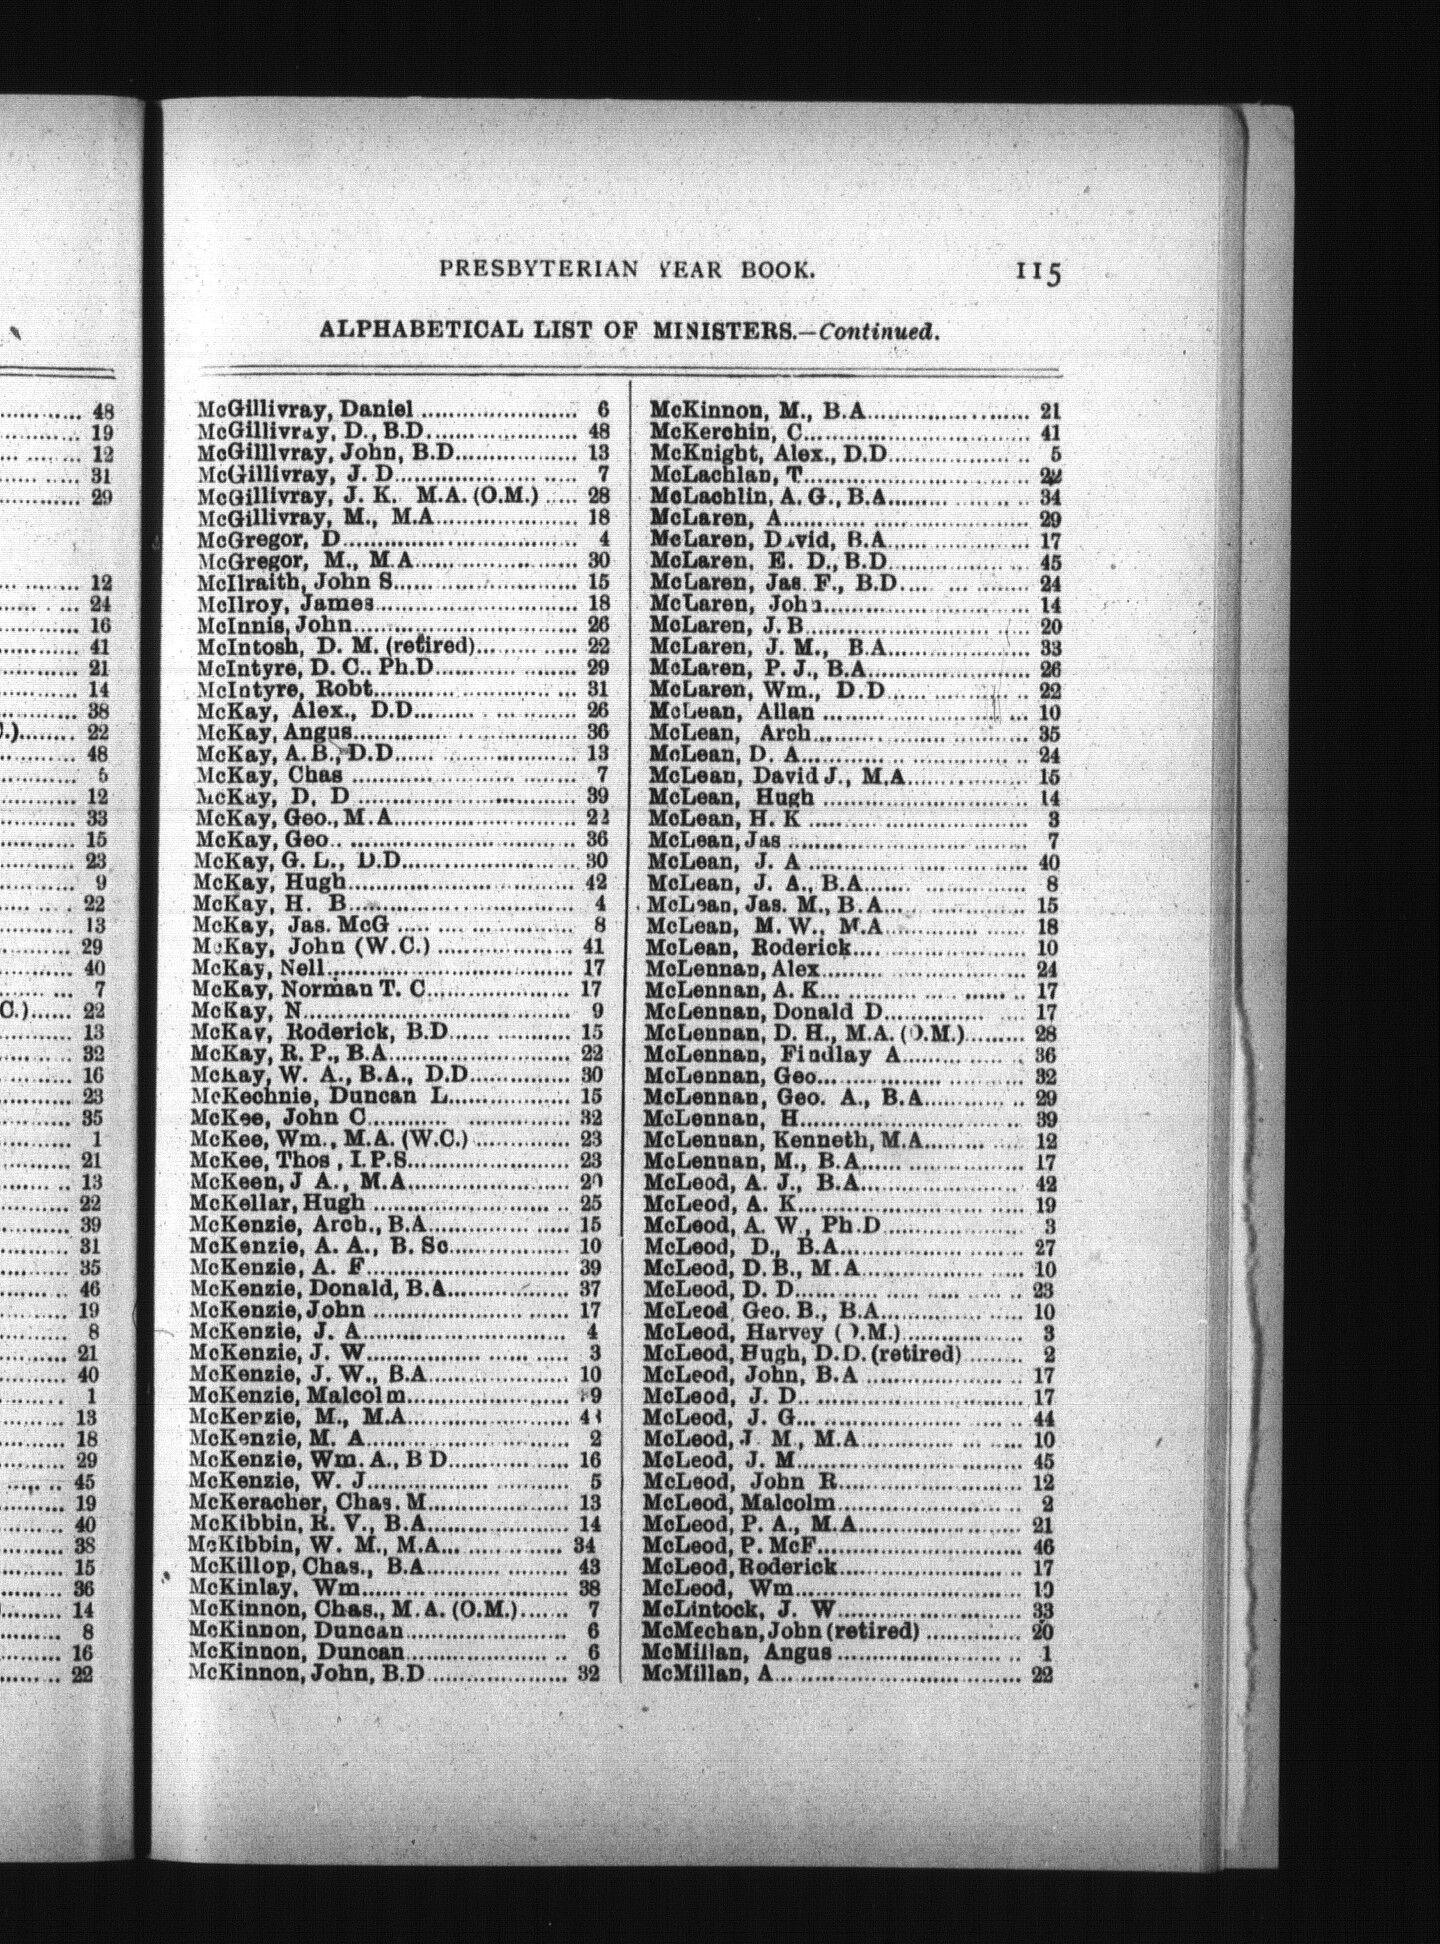 PRESBYTERIAN YEAR BOOK. 115
ALPHABETICAL LIST OF MINISTERS.—Continued.
48
19
12
31
29
12
24
16
41
21
14
38
.)........ 22
48
5
12
33
15
23
9
22
13
29
40
7
C.)...... 22
13
32
16
23
35
1
21
13
22
39
31
35
46
19
8
21
40
1
13
18
29
45
19
40
38
15
36
14
8
16
22
McGillivray, Daniel ........ 6
McGillivray, D., B.D. ........ 48
McGillivray, John, B.D. ........ 13
McGillivray, J. D. ........ 7
McGillivray, J. K. M.A. (O.M.) ..... 28
McGillivray, M., M.A. ........ 18
McGregor, D. ........ 4
McGregor, M., M.A. ........ 30
McIlraith, John S. ........ 15
McIlroy, James ........ 18
McInnis, John ........ 26
McIntosh, D. M. (retired) ........ 22
McIntyre, D. C., Ph.D. ........ 29
McIntyre, Robt. ........ 31
McKay, Alex., D.D. ........ 26
McKay, Angus ........ 36
McKay, A. B., D.D. ........ 13
McKay, Chas ........ 7
McKay, D. D. ........ 39
McKay, Geo., M.A. ........ 22
McKay, Geo. ........ 36
McKay, G. L., D.D. ........ 30
McKay, Hugh ........ 42
McKay, H. B. ........ 4
McKay, Jas. McG ........ 8
McKay, John (W.C.) ........ 41
McKay, Neil ........ 17
McKay, Norman T. C. ........ 17
McKay, N. ........ 9
McKay, Roderick, B.D. ........ 15
McKay, R. P., B.A. ........ 22
McKay, W. A., B.A., D.D. ........ 30
McKechnie, Duncan L. ........ 15
McKee, John C. ........ 32
McKee, Wm., M.A. (W.C.) ........ 23
McKee, Thos, I.P.S. ........ 23
McKeen, J A., M.A. ........ 20
McKellar, Hugh ........ 25
McKenzie, Arch., B.A. ........ 15
McKenzie, A. A., B. Sc. ........ 10
McKenzie, A. F. ........ 39
McKenzie, Donald, B.A. ........ 37
McKenzie, John ........ 17
McKenzie, J. A. ........ 4
McKenzie, J. W. ........ 3
McKenzie, J. W., B.A. ........ 10
McKenzie, Malcolm ........
McKenzie, M., M.A. ........
McKenzie, M. A. ........ 2
McKenzie, Wm. A., B D. ........ 16
McKenzie, W. J. ........ 5
McKeracher, Chas. M. ........ 13
McKibbin, R. V., B.A. ........ 14
McKibbin, W. M., M.A. ........ 34
McKillop, Chas., B.A. ........ 43
McKinlay, Wm. ........ 38
McKinnon, Chas., M.A. (O.M.) ....... 7
McKinnon, Duncan ........ 6
McKinnon, Duncan ........ 6
McKinnon, John, B.D. ........ 32
McKinnon, M., B.A. ........ 21
McKerchin, C. ........ 41
McKnight, Alex., D.D. ........ 5
McLachlan, T. ........ 22
McLachlin, A. G., B.A. ........ 34
McLaren, A. ........ 29
McLaren, David, B.A. ........ 17
McLaren, E. D., B.D. ........ 45
McLaren, Jas. F., B.D. ........ 24
McLaren, John ........ 14
McLaren, J. B. ........ 20
McLaren, J. M., B.A. ........ 33
McLaren, P. J., B.A. ........ 26
McLaren, Wm., D.D. ........ 22
McLean, Allan ........ 10
McLean, Arch ........ 35
McLean, D. A. ........ 24
McLean, David J., M.A. ........ 15
McLean, Hugh ........ 14
McLean, H. K ........ 3
McLean, Jas ........ 7
McLean, J. A ........ 40
McLean, J. A., B.A. ........ 8
McLean, Jas. M., B.A. ........ 15
McLean, M. W., M.A. ........ 18
McLean, Roderick ........ 10
McLennan, Alex ........ 24
McLennan, A. K. ........ 17
McLennan, Donald D. ........ 17
McLennan, D. H., M.A. (O.M.) ........ 28
McLennan, Findlay A. ........ 36
McLennan, Geo. ........ 32
McLennan, Geo. A., B.A. ........ 29
McLennan, H. ........ 39
McLennan, Kenneth, M.A. ........ 12
McLennan, M., B.A. ........ 17
McLeod, A. J., B.A. ........ 42
McLeod, A. K. ........ 19
McLeod, A. W, Ph.D ........ 3
McLeod, D., B.A. ........ 27
McLeod, D. B., M.A. ........ 10
McLeod, D. D. ........ 23
McLeod, Geo. B., B.A. ........ 10
McLeod, Harvey (O.M.) ........ 3
McLeod, Hugh, D.D. (retired) ........ 2
McLeod, John, B.A ........ 17
McLeod, J. D. ........ 17
McLeod, J. G. ........ 44
McLeod, J. M., M.A. ........ 10
McLeod, J. M. ........ 45
McLeod, John R. ........ 12
McLeod, Malcolm ........ 2
McLeod, P. A., M.A. ........ 21
McLeod, P. McF. ........ 46
McLeod, Roderick ........ 17
McLeod, Wm. ........ 19
McLintock, J. W. ........ 33
McMechan, John (retired) ........ 20
McMillan, Angus ........ 1
McMillan, A. ........ 22